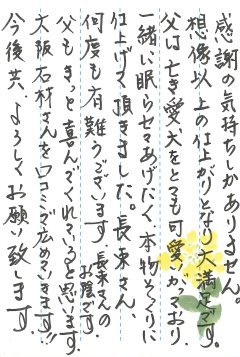 感謝の気持ちしかありません。
想像以上の仕上がりとなり大満足です。
父は亡き愛犬をとても可愛いがっており
一緒に眠らせてあげたく本物そっくりに
仕上げて頂きました。長束さん、
何度も有難うございます。長束さんのお蔭です。
父もきっと喜んでくれていると思います。
大阪石材さんを口コミで広めていきます!!
今後共、よろしくお願い致します。